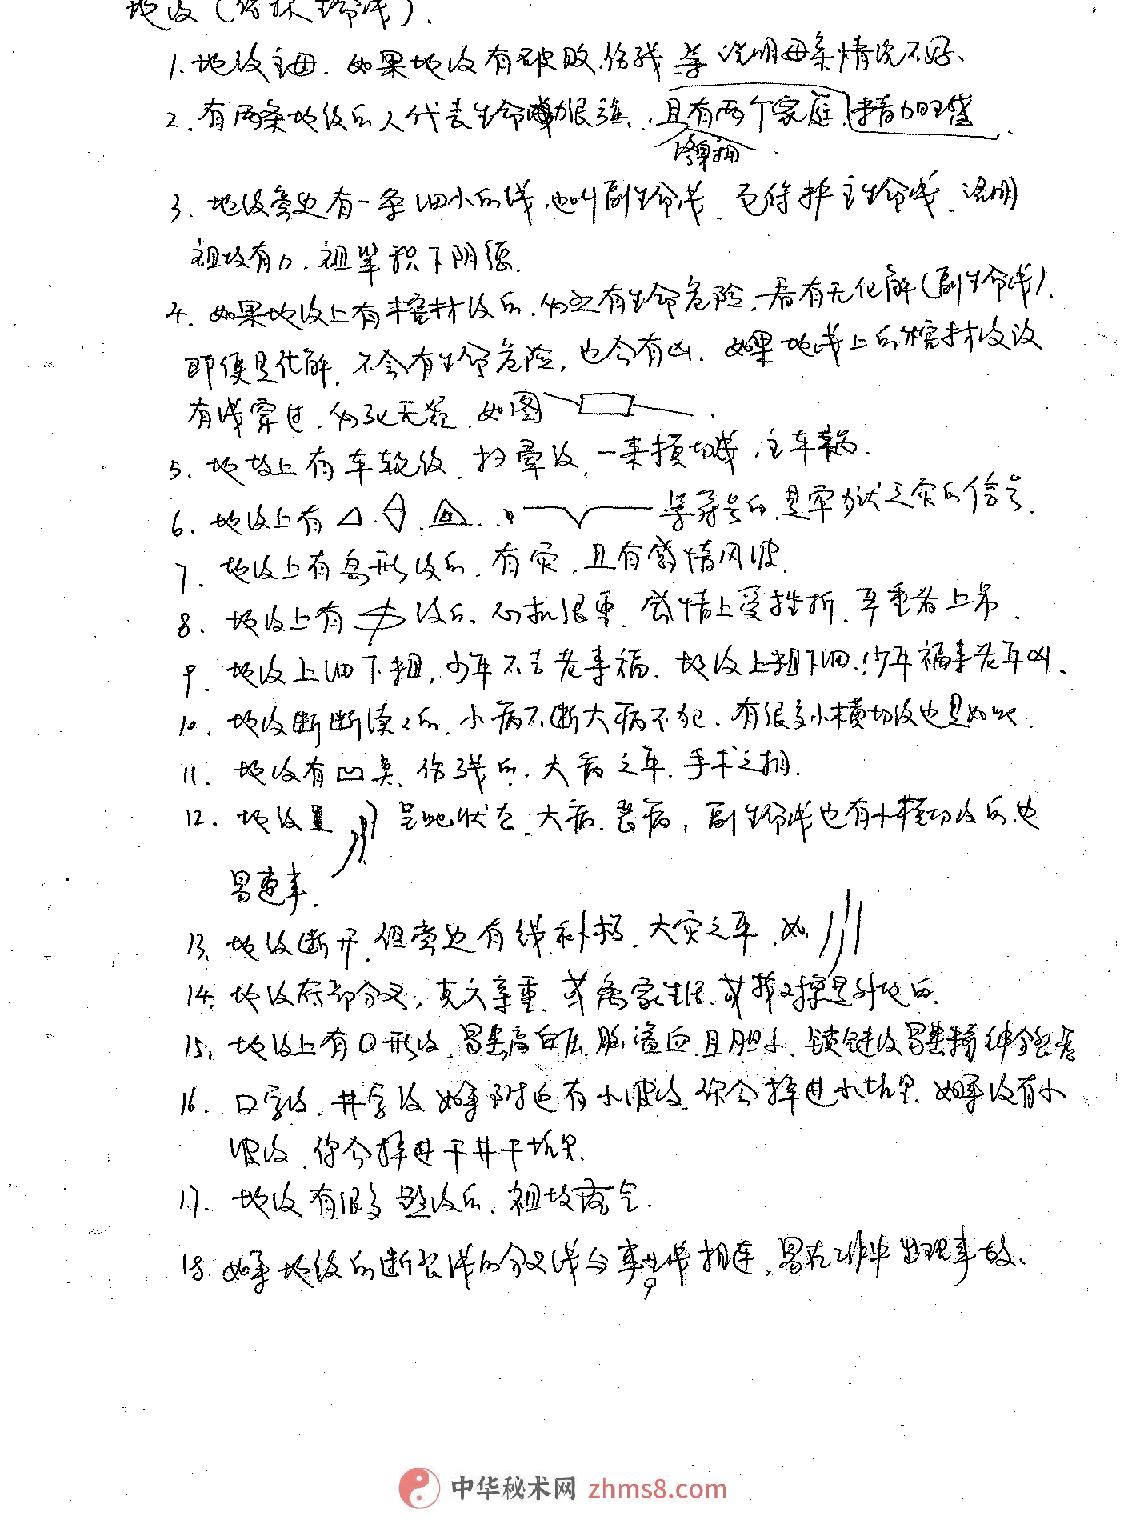 地纹(俗称生命线).
1. 地纹主母. 如果地纹有破败.伤残等说明母亲情况不好、
2. 有两条地纹的人代表生命力很强. 且有两个家庭.精力旺盛.
3. 地纹旁边有一条细小的线.也叫副生命线. 它保护主生命线. 说明
祖坟有力. 祖辈积下阴德.
4. 如果地纹上有棺材纹的. 必定有生命危险. 看有无化解(副生命线).
即使是化解. 不会有生命危险, 也会有凶. 如果地线上的棺材纹没
有线穿过. 必死无疑. 如图 .
5. 地纹上有车轮纹. 一条横切线. 主车祸.
6. 地纹上有 等符号的. 是牢狱之灾的信号.
7. 地纹上有岛形纹的. 有灾. 且有感情风波.
8. 地纹上有 纹的. 心机很重. 感情上受挫折. 严重者上吊.
9. 地纹上细下粗. 少年不吉老来福. 地纹上粗下细. 少年福来老年凶.
10. 地纹断断续续的. 小病不断大病不犯. 有很多小横切纹也是如此.
11. 地纹有凹臭. 伤残的. 大病之年. 手术之相.
12. 地纹呈此状态. 大病. 副生命线也有小横切纹的也
易遭事.
13. 地纹断开. 但旁边有线补格. 大灾之年. 如
14. 地纹底部分叉. 或离家生活. 或找对象是外地的.
15. 地纹上有口形纹. 易患高血压. 脑溢血. 且胆小. 锁链纹易患精神分裂者
16. 口字纹. 井字纹. 如果附近有小波纹. 你会掉进水坑里. 如果没有水
波纹. 你会掉进干井干坑里.
17. 地纹有很多 纹的. 祖坟落空.
18. 如果地纹的断裂线的分叉线与事业线相连. 易在工作中出现事故.
中华秘术网 zhms8.com